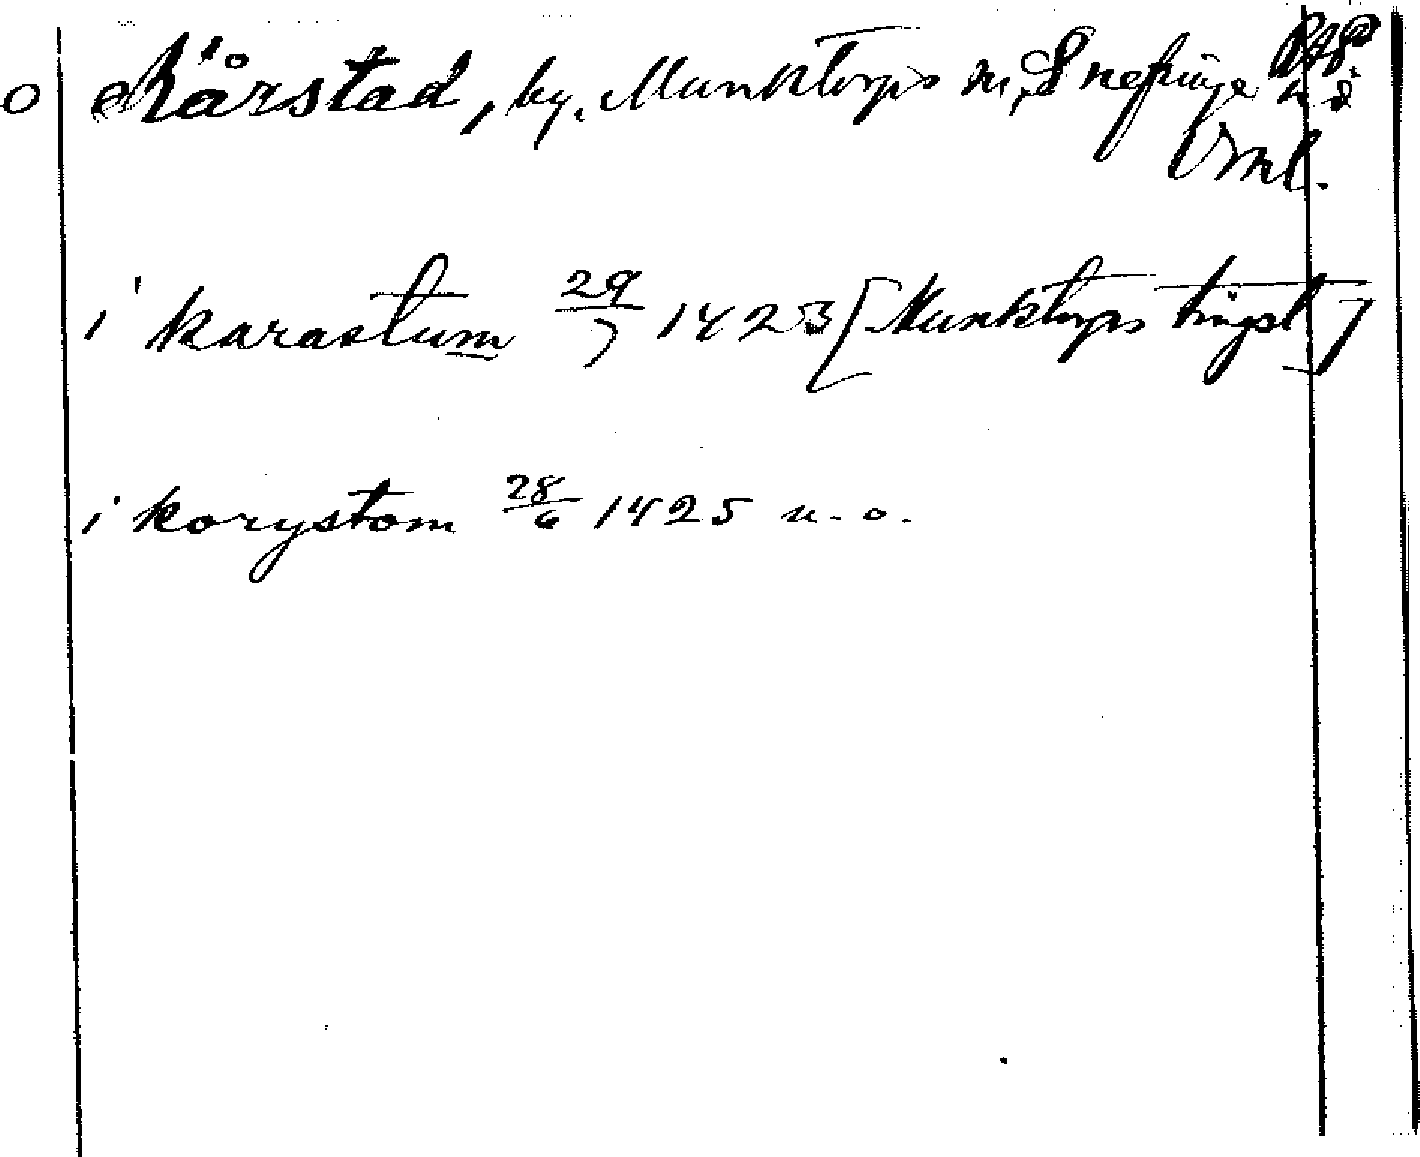 o Kårstad, by, Munktorps sn, Snefringe hd
Vml.
i karastum 29/7 1423 [Munktorps tingst]
i korystom 28/6 1425 u.o.